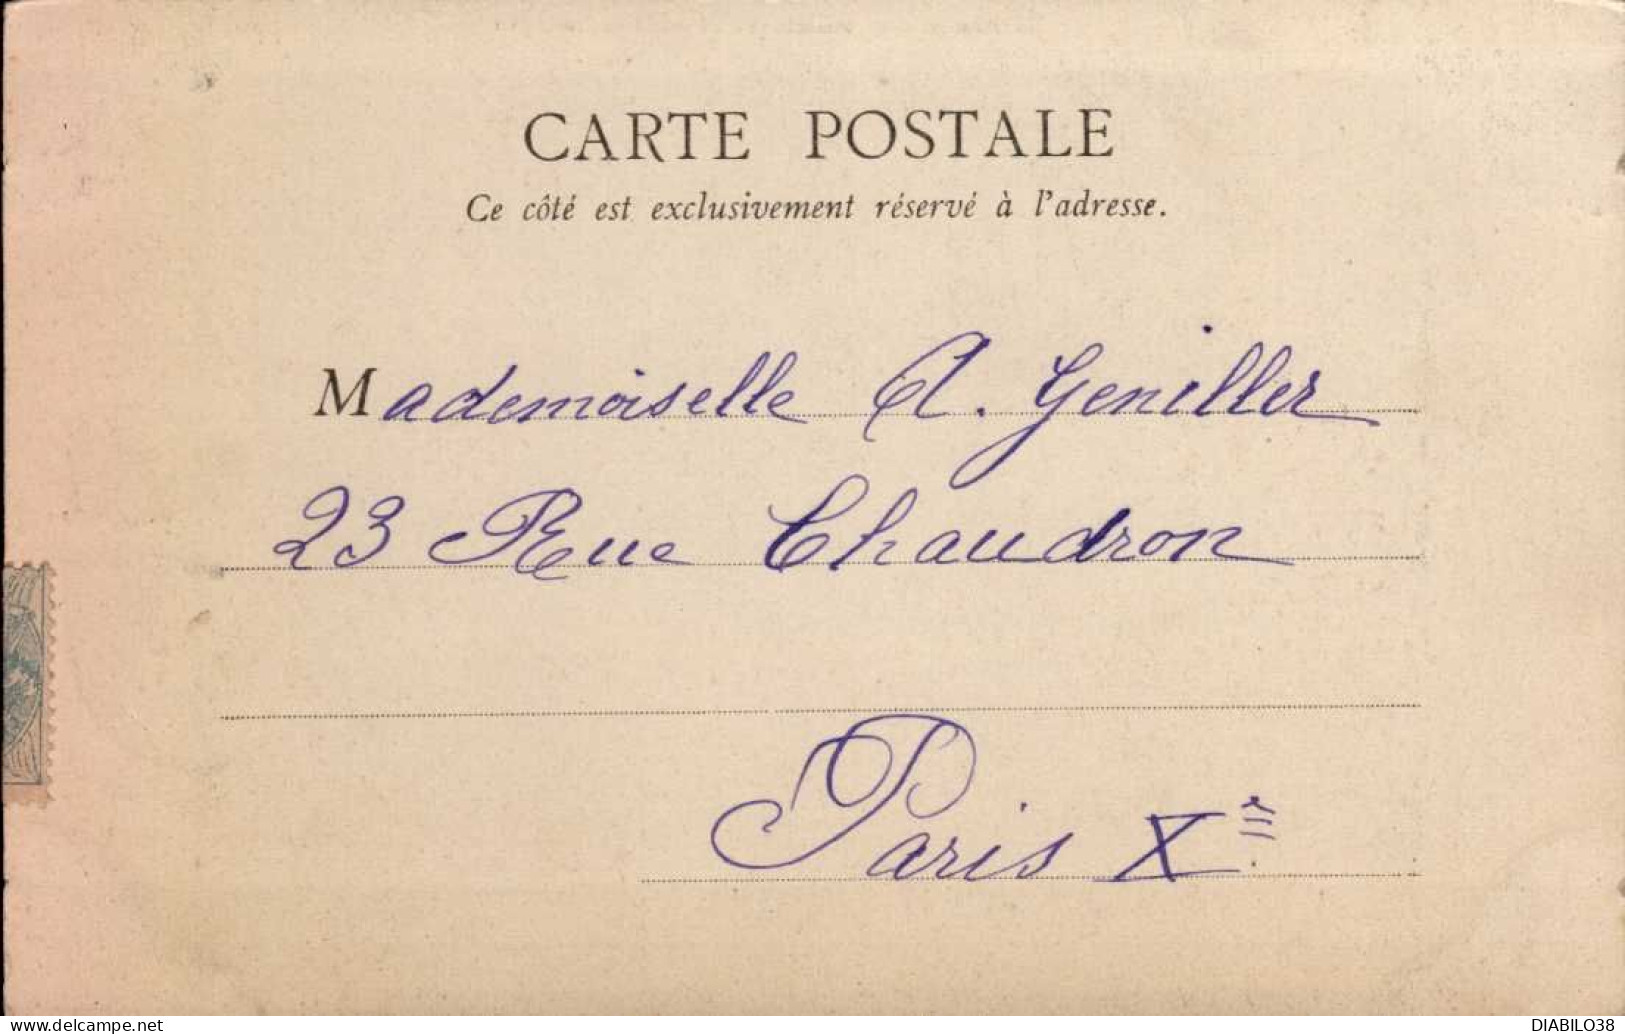 CARTE POSTALE
Ce côté est exclusivement réservé à l'adresse.
Mademoiselle A. Geniller
23 Rue Chaudron
Paris Xe
www.delcampe.net
DIABILO38